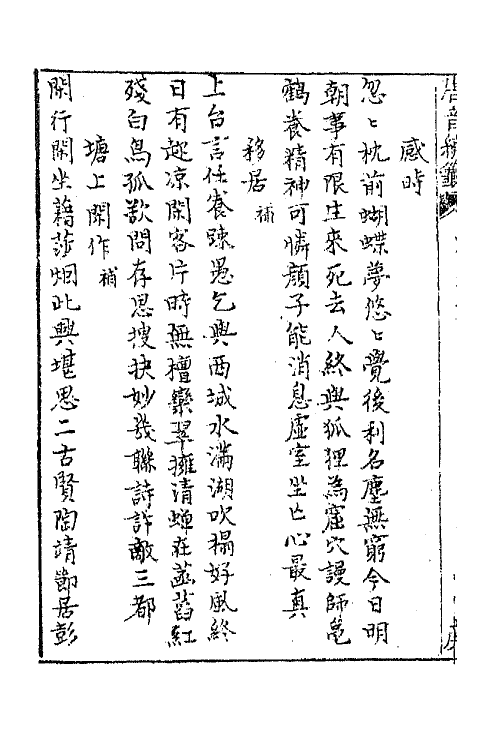 唐音統籤
感時
忽〻枕前蝴蝶夢悠〻覺後利名塵無窮今日明
朝事有限生來死去人終與狐狸為窟穴謾師龜
鶴養精神可憐顏子能消息虛室坐亡心最真
移居補
上台言任養踈愚乞與西城水滿湖吹榻好風終
日有趂凉閑客片時無檐欒翠擁清蟬在菡萏紅
殘白鳥孤欲問存思搜抉妙幾聯詩許敵三都
塘上閑作補
閑行閑坐藉莎烟此興堪思二古賢陶靖節居彭